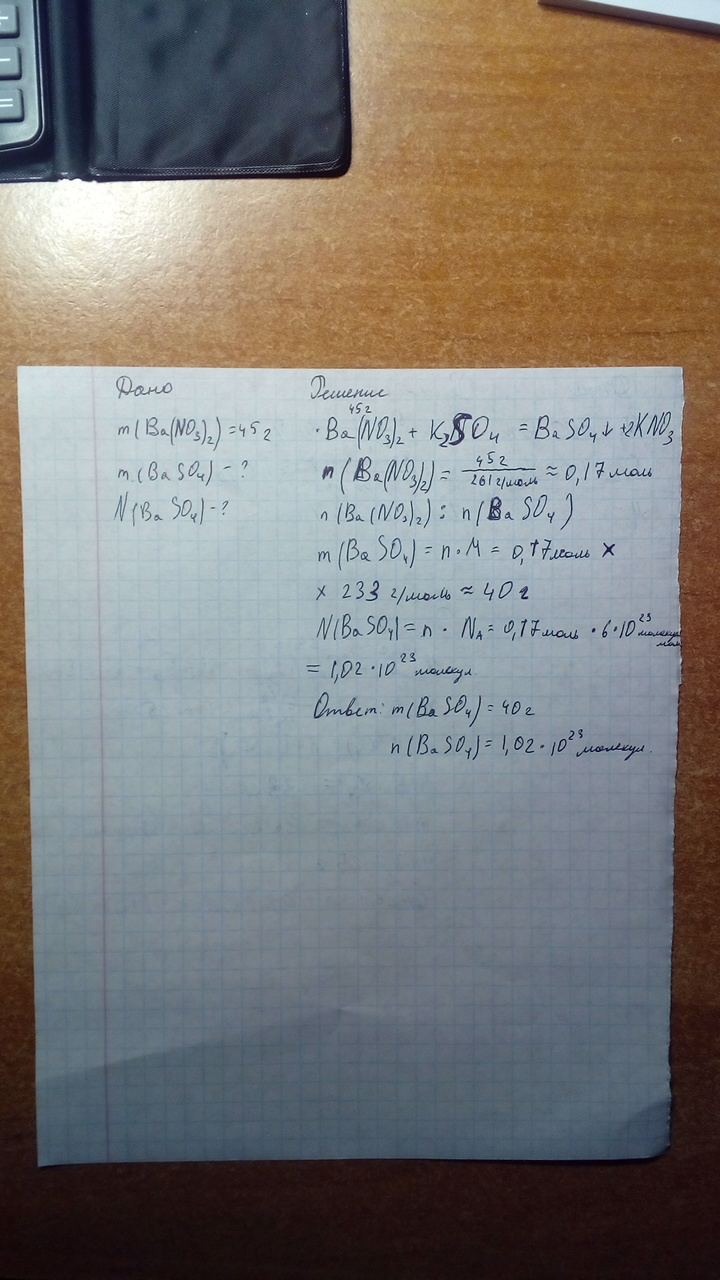 Дано
m(Ba(NO₃)₂)=45г
m(BaSO₄) - ?
N(BaSO₄) - ?
Решение
45г
·Ba(NO₃)₂ + K₂SO₄ = BaSO₄↓ + 2KNO₃
n(Ba(NO₃)₂) = 45г / 261г/моль ≈ 0,17моль
n(Ba(NO₃)₂) : n(BaSO₄)
m(BaSO₄) = n · M = 0,17моль ×
× 233 г/моль ≈ 40г
N(BaSO₄) = n · Nₐ = 0,17моль · 6·10²³ молекул/моль
= 1,02 · 10²³ молекул
Ответ: m(BaSO₄) = 40г
n(BaSO₄) = 1,02 · 10²³ молекул.